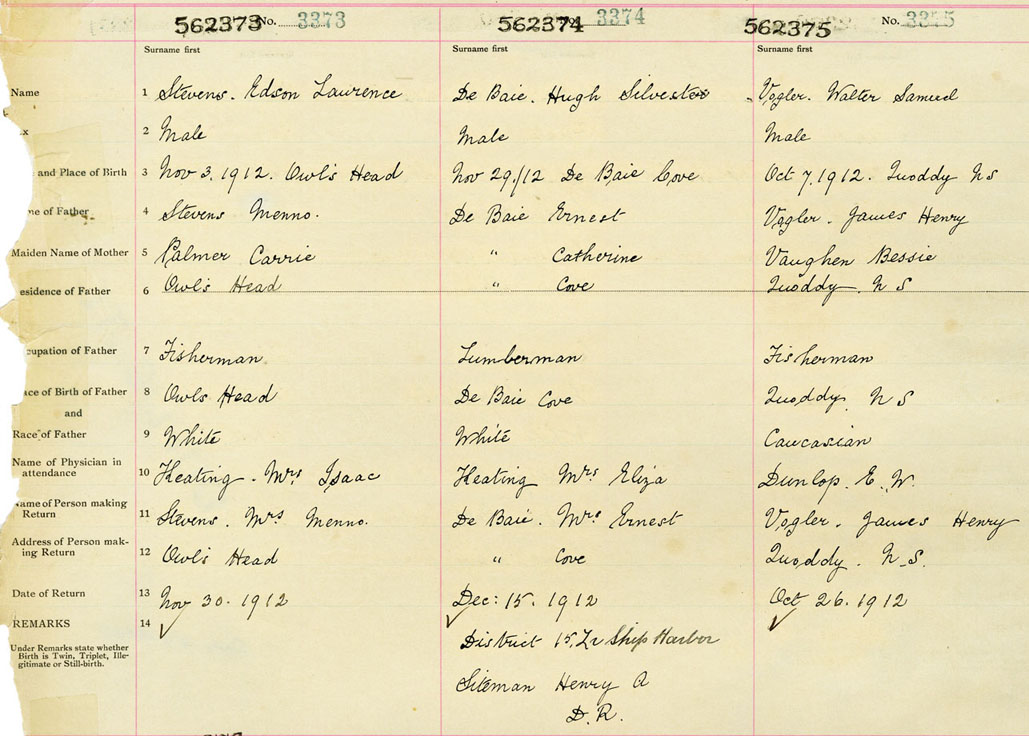 562373 No. 3373 562374 No. 3374 562375 No. 3375
Surname first Surname first Surname first
Name 1 Stevens. Edson Lawrence De Baie. Hugh Silvester Vogler. Walter Samuel
2 Male Male Male
and Place of Birth 3 Nov 3. 1912. Owl's Head Nov 29/12 De Baie Cove Oct 7. 1912. Quoddy N S
me of Father 4 Stevens Menno. De Baie Ernest Vogler. James Henry
Maiden Name of Mother 5 Palmer Carrie " Catherine Vaughen Bessie
esidence of Father 6 Owl's Head " Cove Quoddy. N S
cupation of Father 7 Fisherman Lumberman Fisherman
ace of Birth of Father 8 Owls Head De Baie Cove Quoddy N S
and
Race of Father 9 White White Caucasian
Name of Physician in attendance 10 Keating. Mrs Isaac Keating Mrs Eliza Dunlop. E. W.
ame of Person making Return 11 Stevens. Mrs Menno. De Baie. Mrs Ernest Vogler. James Henry
Address of Person mak-
ing Return 12 Owl's Head " Cove Quoddy. N.S.
Date of Return 13 Nov 30. 1912 Dec: 15. 1912 Oct 26. 1912
REMARKS 14
Under Remarks state whether
Birth is Twin, Triplet, Ille-
gitimate or Still-birth.
District 15, Ship Harbor
Siteman Henry A
D. R.